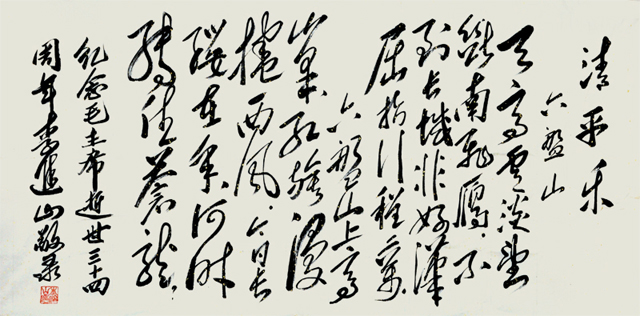 清平乐
六盤山
天高云淡望
断南飛雁不
到长城非好汉
屈指行程二万
六盤山上高
峯红旗漫
捲西风今日长
缨在手何时
缚住苍龙
纪念毛主席逝世三十四
周年李進山敬录